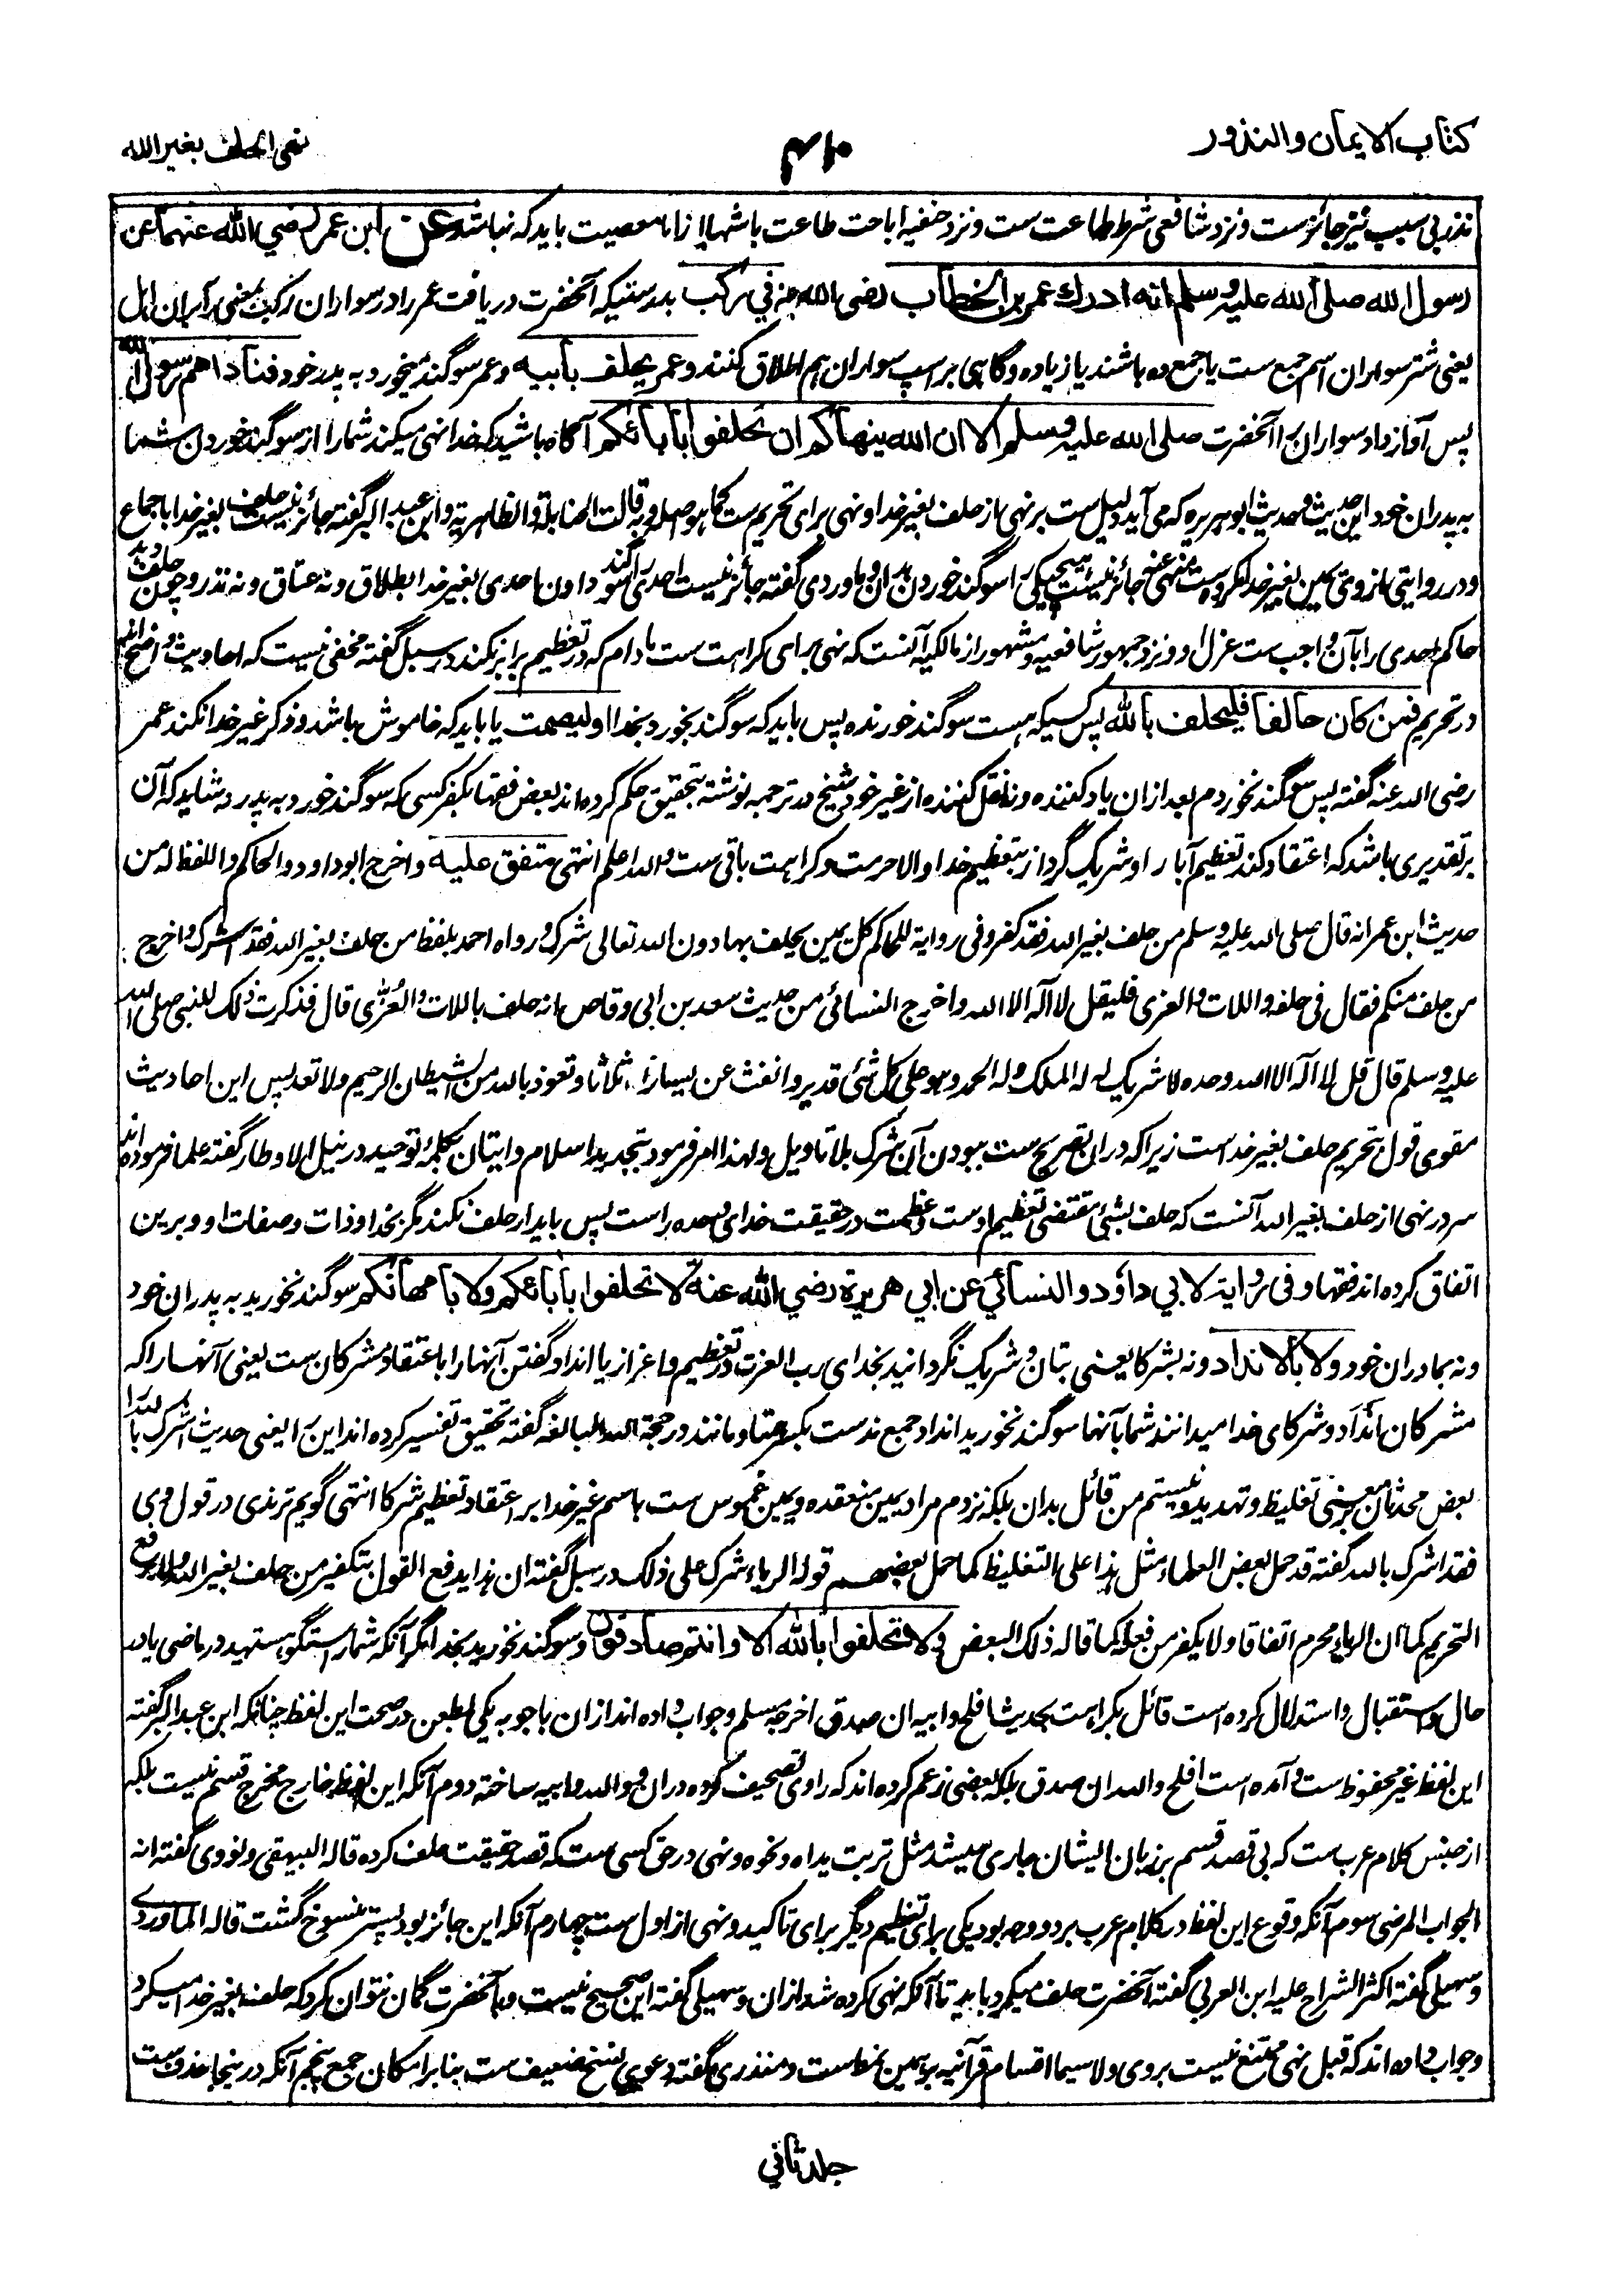 كتاب الايمان والنذور
۴۱۰
نهى الحلف بغير الله
نذر بی سبب نیز جائزست و نزد شافعی شرط طاعت ست و نزد حنفیه اباحت طاعت باشد یا نه اما معصیت باید که نباشد وعن ابن عمر رضي الله عنهما عن
رسول الله صلى الله عليه وسلم انه ادرك عمر بن الخطاب رضی الله عنه في ركب بدرستیکه آنحضرت دریافت عمر را در سواران رکب بمعنی اہل
یعنی شتر سواران اسم جمع ست یا جمع ده باشند یا زیاده و گاہی بر اسپ سواران ہم اطلاق کنند وعمر يحلف بابيه وعمر سوگند میخورد به پدر خود فناداهم رسول الله
پس آواز داد سواران را آنحضرت صلى الله عليه وسلم الا ان الله ينهاكم ان تحلفوا بابائكم آگاه باشید که خدا نهی میکند شما را از سوگند خوردن شما
به پدران خود این حدیث و حدیث ابوہریره که می آید دلیل ست بر نهی از حلف بغیر خدا و نهی برای تحریم ست کما ہو اصله و به قالت الحنابلة والظاہریة و ابن عبد البر گفته جائز نیست حلف بغیر خدا باجماع
و در روایتی از وی یمین بغیر خدا مکروه ست منهی عنها جائز نیست ہیچ یکی را سوگند خوردن بدان و ماوردی گفته جائز نیست احدی را سوگند دادن باحدی بغیر خدا بطلاق و نه عتاق و نه نذر و چون حلف دہد
حاکم احدی را بآن واجب ست عزل او و نزد جمہور شافعیه و مشہور از مالکیه آنست که نهی برای کراہت ست مادام که در تعظیم برابر نکند در سبل گفته مخفی نیست که احادیث واضح اند
در تحریم فمن كان حالفا فليحلف بالله پس کسیکه ہست سوگند خورنده پس باید که سوگند بخورد بخدا او ليصمت یا باید که خاموش باشد و ذکر غیر خدا نکند عمر
رضی الله عنه گفته پس سوگند نخوردم بعد ازان یاد کننده و نه نقل کننده از غیر خود شیخ در ترجمه نوشته بتحقیق حکم کرده اند بعض فقها بکفر کسی که سوگند خورد به پدر و شاید که آن
بر تقدیری باشد که اعتقاد کند تعظیم آبا را و شریک گرداند بتعظیم خدا و الا حرمت و کراہت باقی ست والله اعلم انتهی متفق عليه واخرج ابو داود والحاكم واللفظ له من
حديث ابن عمر انه قال صلى الله عليه وسلم من حلف بغير الله فقد كفر وفى رواية للحاكم كل يمين يحلف بها دون الله تعالى شرك ورواه احمد بلفظ من حلف بغير الله فقد اشرك واخرج
من حلف منكم فقال فى حلفه واللات والعزى فليقل لا اله الا الله واخرج النسائى من حديث سعد بن ابى وقاص انه حلف باللات والعزى قال فذكرت ذلك للنبى صلى الله
عليه وسلم قال قل لا اله الا الله وحده لا شريك له له الملك وله الحمد وهو على كل شئ قدير وانفث عن يسارك ثلاثا وتعوذ بالله من الشيطان الرجيم ولا تعد پس این احادیث
مقوی قول بتحریم حلف بغیر خداست زیراکه دران تصریح ست ببودن آن شرک بلا تاویل و لہذا امر فرمود بتجدید اسلام و اتیان بکلمۂ توحید در نیل الاوطار گفته علما فرموده اند
سر در نهی از حلف بغیر الله آنست که حلف بشئی مقتضی تعظیم اوست و عظمت در حقیقت خدای وحده راست پس باید که حلف نکند مگر بخدا و ذات و صفات او و برین
اتفاق کرده اند فقها وفى رواية لابي داؤد والنسائي عن ابي هريرة رضي الله عنه لا تحلفوا بابائكم ولا بامهاتكم سوگند نخورید به پدران خود
و نه بمادران خود ولا بالانداد و نه بشرکا یعنی بتان و شریک نگردانید بخدای رب العزت در تعظیم و اعزاز یا انداد گفتن آنہا را باعتقاد مشرکان ست یعنی آنہا را که
مشرکان انداد و شرکای خدا میدانند شما بآنہا سوگند نخورید انداد جمع ندست بکسر ہمتا و مانند در حجة الله البالغه گفته تحقیق تفسیر کرده اند این را یعنی حدیث اشرک بالله را
بعض محدثان بر معنی تغلیظ و تهدید و نیستم من قائل بدان بلکه نزدم مراد یمین منعقده و یمین غموس ست باسم غیر خدا بر اعتقاد تعظیم شرکا انتهی گویم ترمذی در قول وی
فقد اشرك بالله گفته قد حمل بعض العلماء مثل هذا على التغليظ كما حمل بعضهم قوله الرياء شرك على ذلك در سبل گفته ان هذا يدفع القول بتكفير من حلف بغير الله ولا يرفع
التحريم كما ان الرياء محرم اتفاقا ولا يكفر من فعله كما قاله ذلك البعض ولا تحلفوا بالله الا وانتم صادقون و سوگند نخورید بخدا مگر آنکه شما راستگو ہستید در ماضی یا در
حال و استقبال و استدلال کرده است قائل بکراہت بحدیث افلح وابیه ان صدق اخرجه مسلم و جواب داده اند ازان باجوبه یکی طعن در صحت این لفظ چنانکه ابن عبد البر گفته
این لفظ غیر محفوظ ست و آمده است افلح والله ان صدق بلکه بعضی زعم کرده اند که راوی تصحیف کرده دران و والله را وابیه ساخته دوم آنکه این لفظ خارج مخرج قسم نیست بلکه
از جنس کلام عرب ست که بی قصد قسم بر زبان ایشان جاری میشد مثل تربت یداه و نحوه و نهی در حق کسی ست که قصد حقیقت حلف کرده قاله البیهقی و نووی گفته انه
الجواب المرضی سوم آنکه وقوع این لفظ در کلام عرب بر دو وجه بود یکی برای تعظیم دیگر برای تاکید و نهی از اول ست چهارم آنکه این جائز بود پستر منسوخ گشت قاله الماوردی
و سهیلی گفته اکثر الشراح علیه ابن العربی گفته آنحضرت حلف میکرد بابیه تا آنکه نهی کرده شد ازان و سهیلی گفته این صحیح نیست و بآنحضرت گمان نتوان کرد که حلف بغیر خدا میکرد
و جواب داده اند که قبل نهی ممتنع نیست بروی ولا سیما اقسام قرآنیه بر ہمین نمط ست و منذری گفته دعوی نسخ ضعیف ست بنابر امکان جمع پنجم آنکه درینجا حذف ست
جلد ثاني